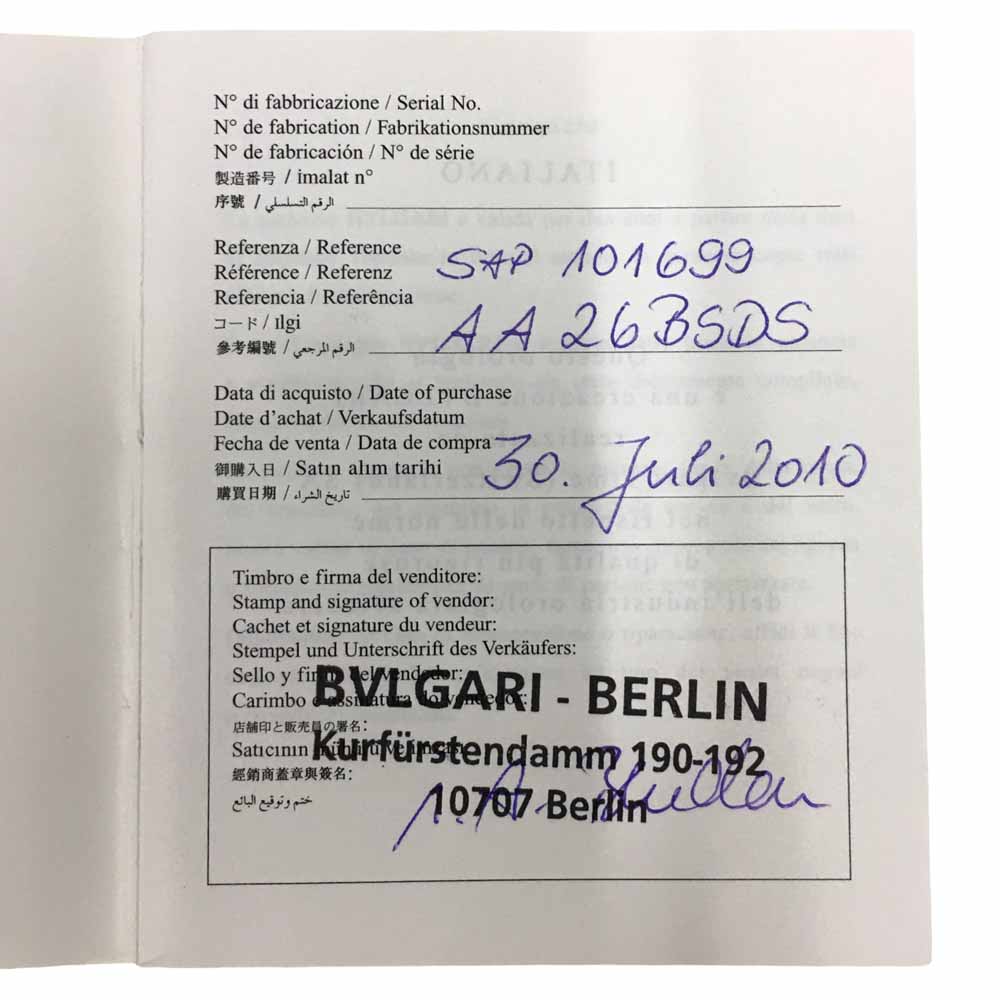 N° di fabbricazione / Serial No.
N° de fabrication / Fabrikationsnummer
N° de fabricación / N° de série
製造番号 / imalat n°
序號 / الرقم التسلسلي
Referenza / Reference
Référence / Referenz
Referencia / Referência
コード / ılgi
參考編號 / الرقم المرجعي
SAP 101699
AA 26BSDS
Data di acquisto / Date of purchase
Date d'achat / Verkaufsdatum
Fecha de venta / Data de compra
御購入日 / Satın alım tarihi
購買日期 / تاريخ الشراء
30. Juli 2010
Timbro e firma del venditore:
Stamp and signature of vendor:
Cachet et signature du vendeur:
Stempel und Unterschrift des Verkäufers:
Sello y firma del vendedor:
Carimbo e assinatura do vendedor:
店舗印と販売員の署名:
Satıcının
經銷商蓋章與簽名:
ختم وتوقيع البائع
BVLGARI - BERLIN
Kurfürstendamm 190-192
10707 Berlin
ITALIANO